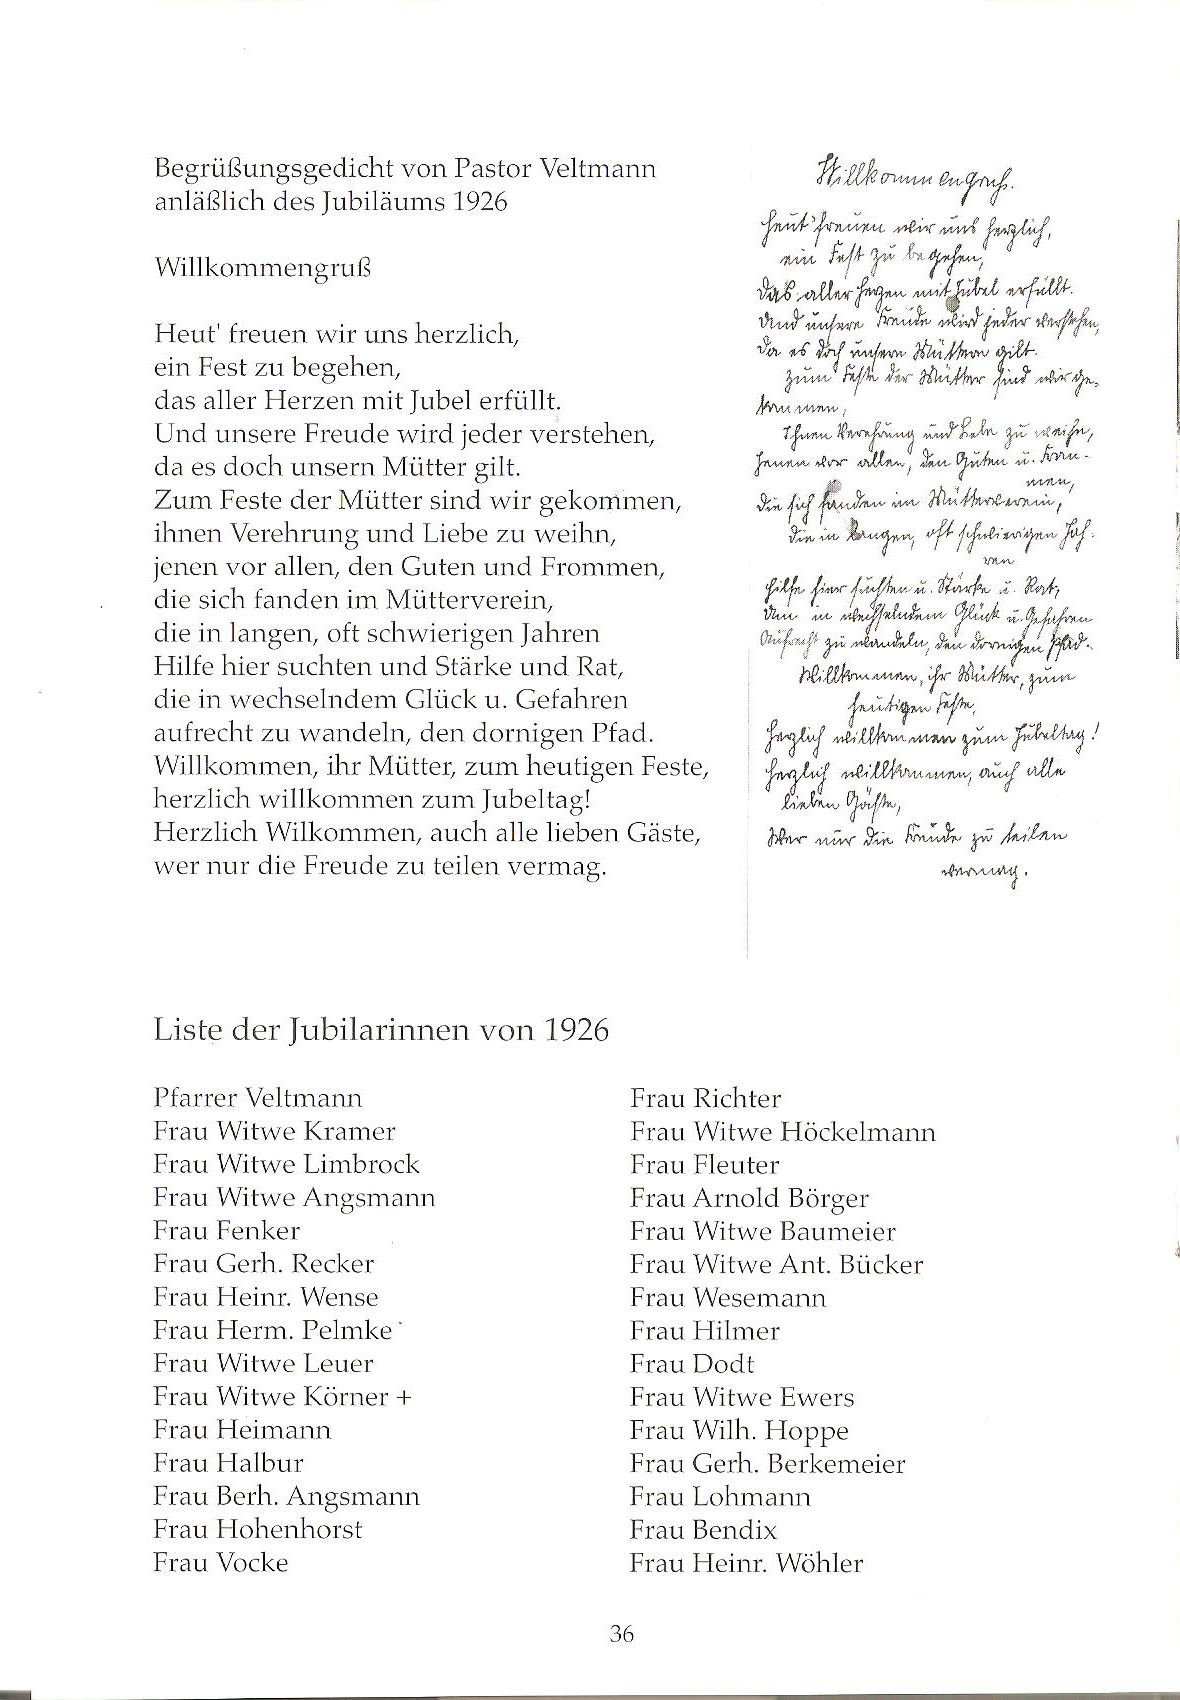 Begrüßungsgedicht von Pastor Veltmann
anläßlich des Jubiläums 1926
Willkommengruß
Heut' freuen wir uns herzlich,
ein Fest zu begehen,
das aller Herzen mit Jubel erfüllt.
Und unsere Freude wird jeder verstehen,
da es doch unsern Mütter gilt.
Zum Feste der Mütter sind wir gekommen,
ihnen Verehrung und Liebe zu weihn,
jenen vor allen, den Guten und Frommen,
die sich fanden im Mütterverein,
die in langen, oft schwierigen Jahren
Hilfe hier suchten und Stärke und Rat,
die in wechselndem Glück u. Gefahren
aufrecht zu wandeln, den dornigen Pfad.
Willkommen, ihr Mütter, zum heutigen Feste,
herzlich willkommen zum Jubeltag!
Herzlich Wilkommen, auch alle lieben Gäste,
wer nur die Freude zu teilen vermag.
Willkommengruß.
Heut' freuen wir uns herzlich,
ein Fest zu begehen,
Das aller Herzen mit Jubel erfüllt.
Und unsere Freude wird jeder verstehen,
Da es doch unsern Müttern gilt.
Zum Feste der Mütter sind wir ge-
kommen,
Ihnen Verehrung und Liebe zu weihn,
Jenen vor allen, den Guten u. From-
men,
Die sich fanden im Mütterverein,
Die in langen, oft schwierigen Jah-
ren
Hilfe hier suchten u. Stärke u. Rat,
Um in wechselndem Glück u. Gefahren
Aufrecht zu wandeln, den dornigen Pfad.
Willkommen, ihr Mütter, zum
heutigen Feste,
Herzlich willkommen zum Jubeltag!
Herzlich willkommen, auch alle
lieben Gäste,
Wer nur die Freude zu teilen
vermag.
Liste der Jubilarinnen von 1926
Pfarrer Veltmann
Frau Witwe Kramer
Frau Witwe Limbrock
Frau Witwe Angsmann
Frau Fenker
Frau Gerh. Recker
Frau Heinr. Wense
Frau Herm. Pelmke
Frau Witwe Leuer
Frau Witwe Körner +
Frau Heimann
Frau Halbur
Frau Berh. Angsmann
Frau Hohenhorst
Frau Vocke
Frau Richter
Frau Witwe Höckelmann
Frau Fleuter
Frau Arnold Börger
Frau Witwe Baumeier
Frau Witwe Ant. Bücker
Frau Wesemann
Frau Hilmer
Frau Dodt
Frau Witwe Ewers
Frau Wilh. Hoppe
Frau Gerh. Berkemeier
Frau Lohmann
Frau Bendix
Frau Heinr. Wöhler
36